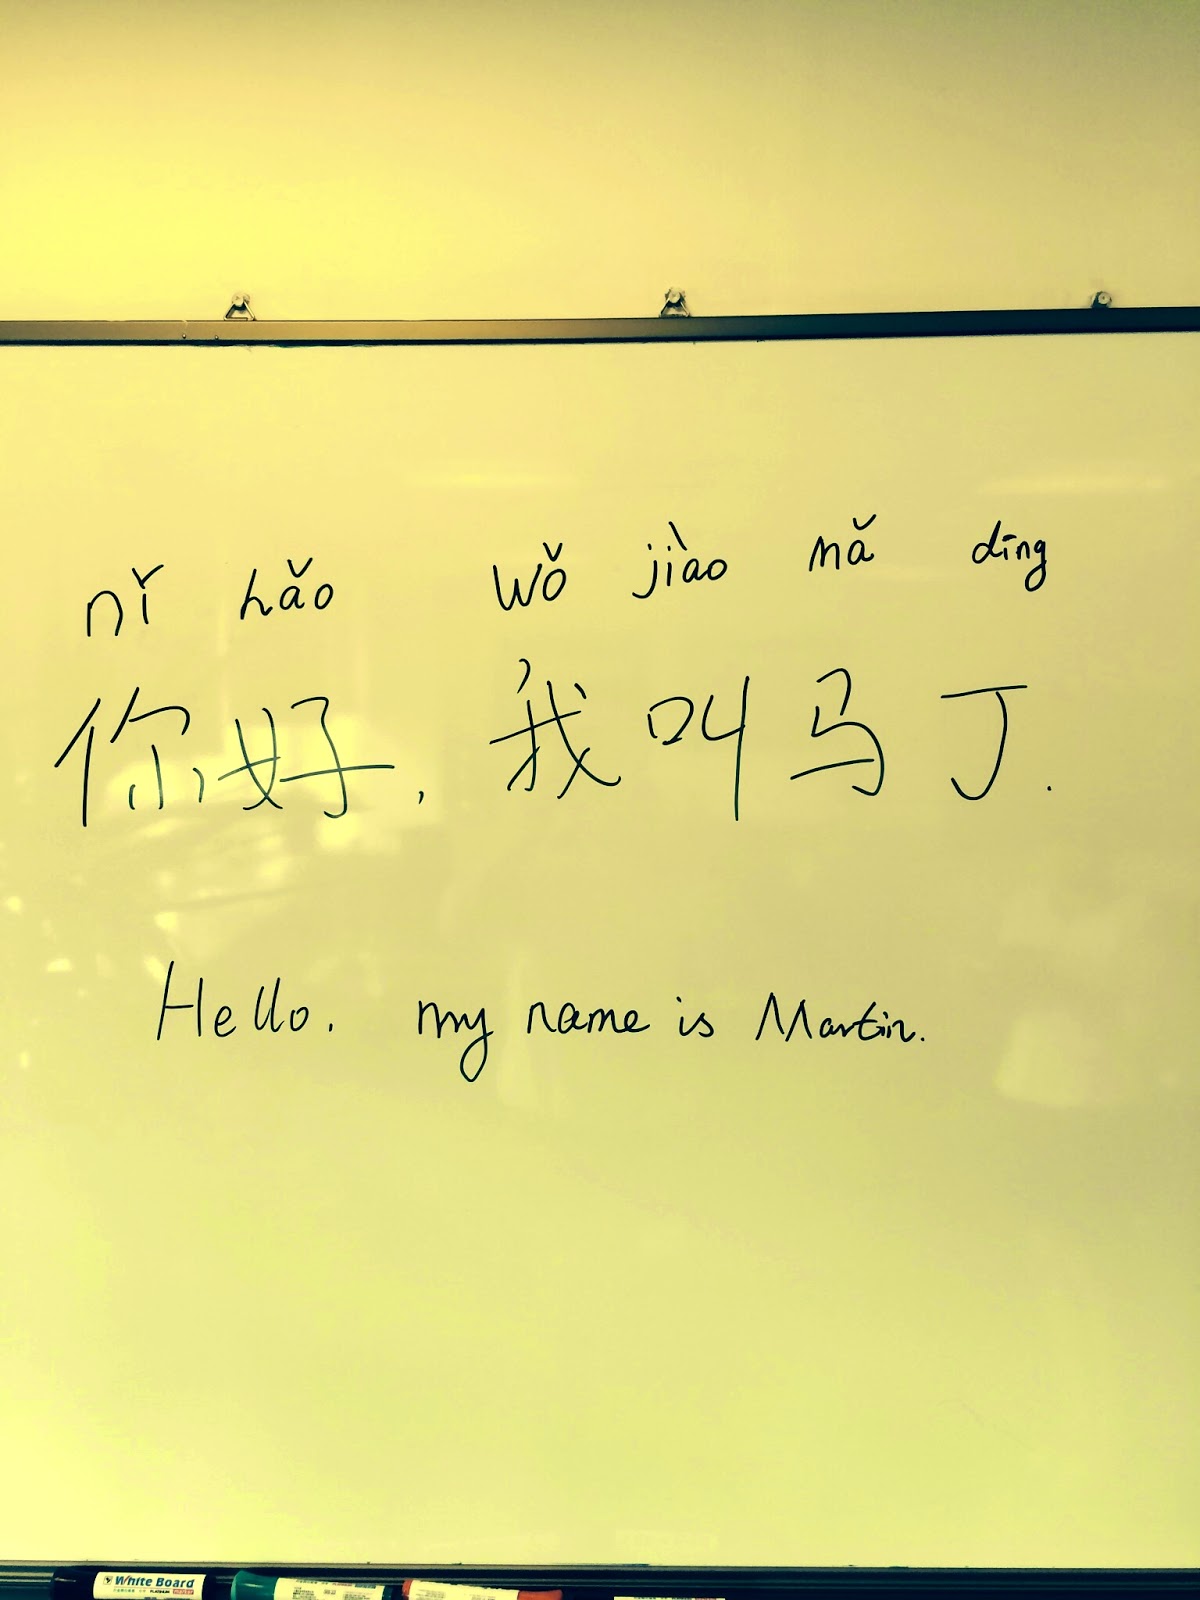 nǐ hǎo wǒ jiào mǎ dīng
你好, 我叫马丁.
Hello. my name is Martin.
White Board